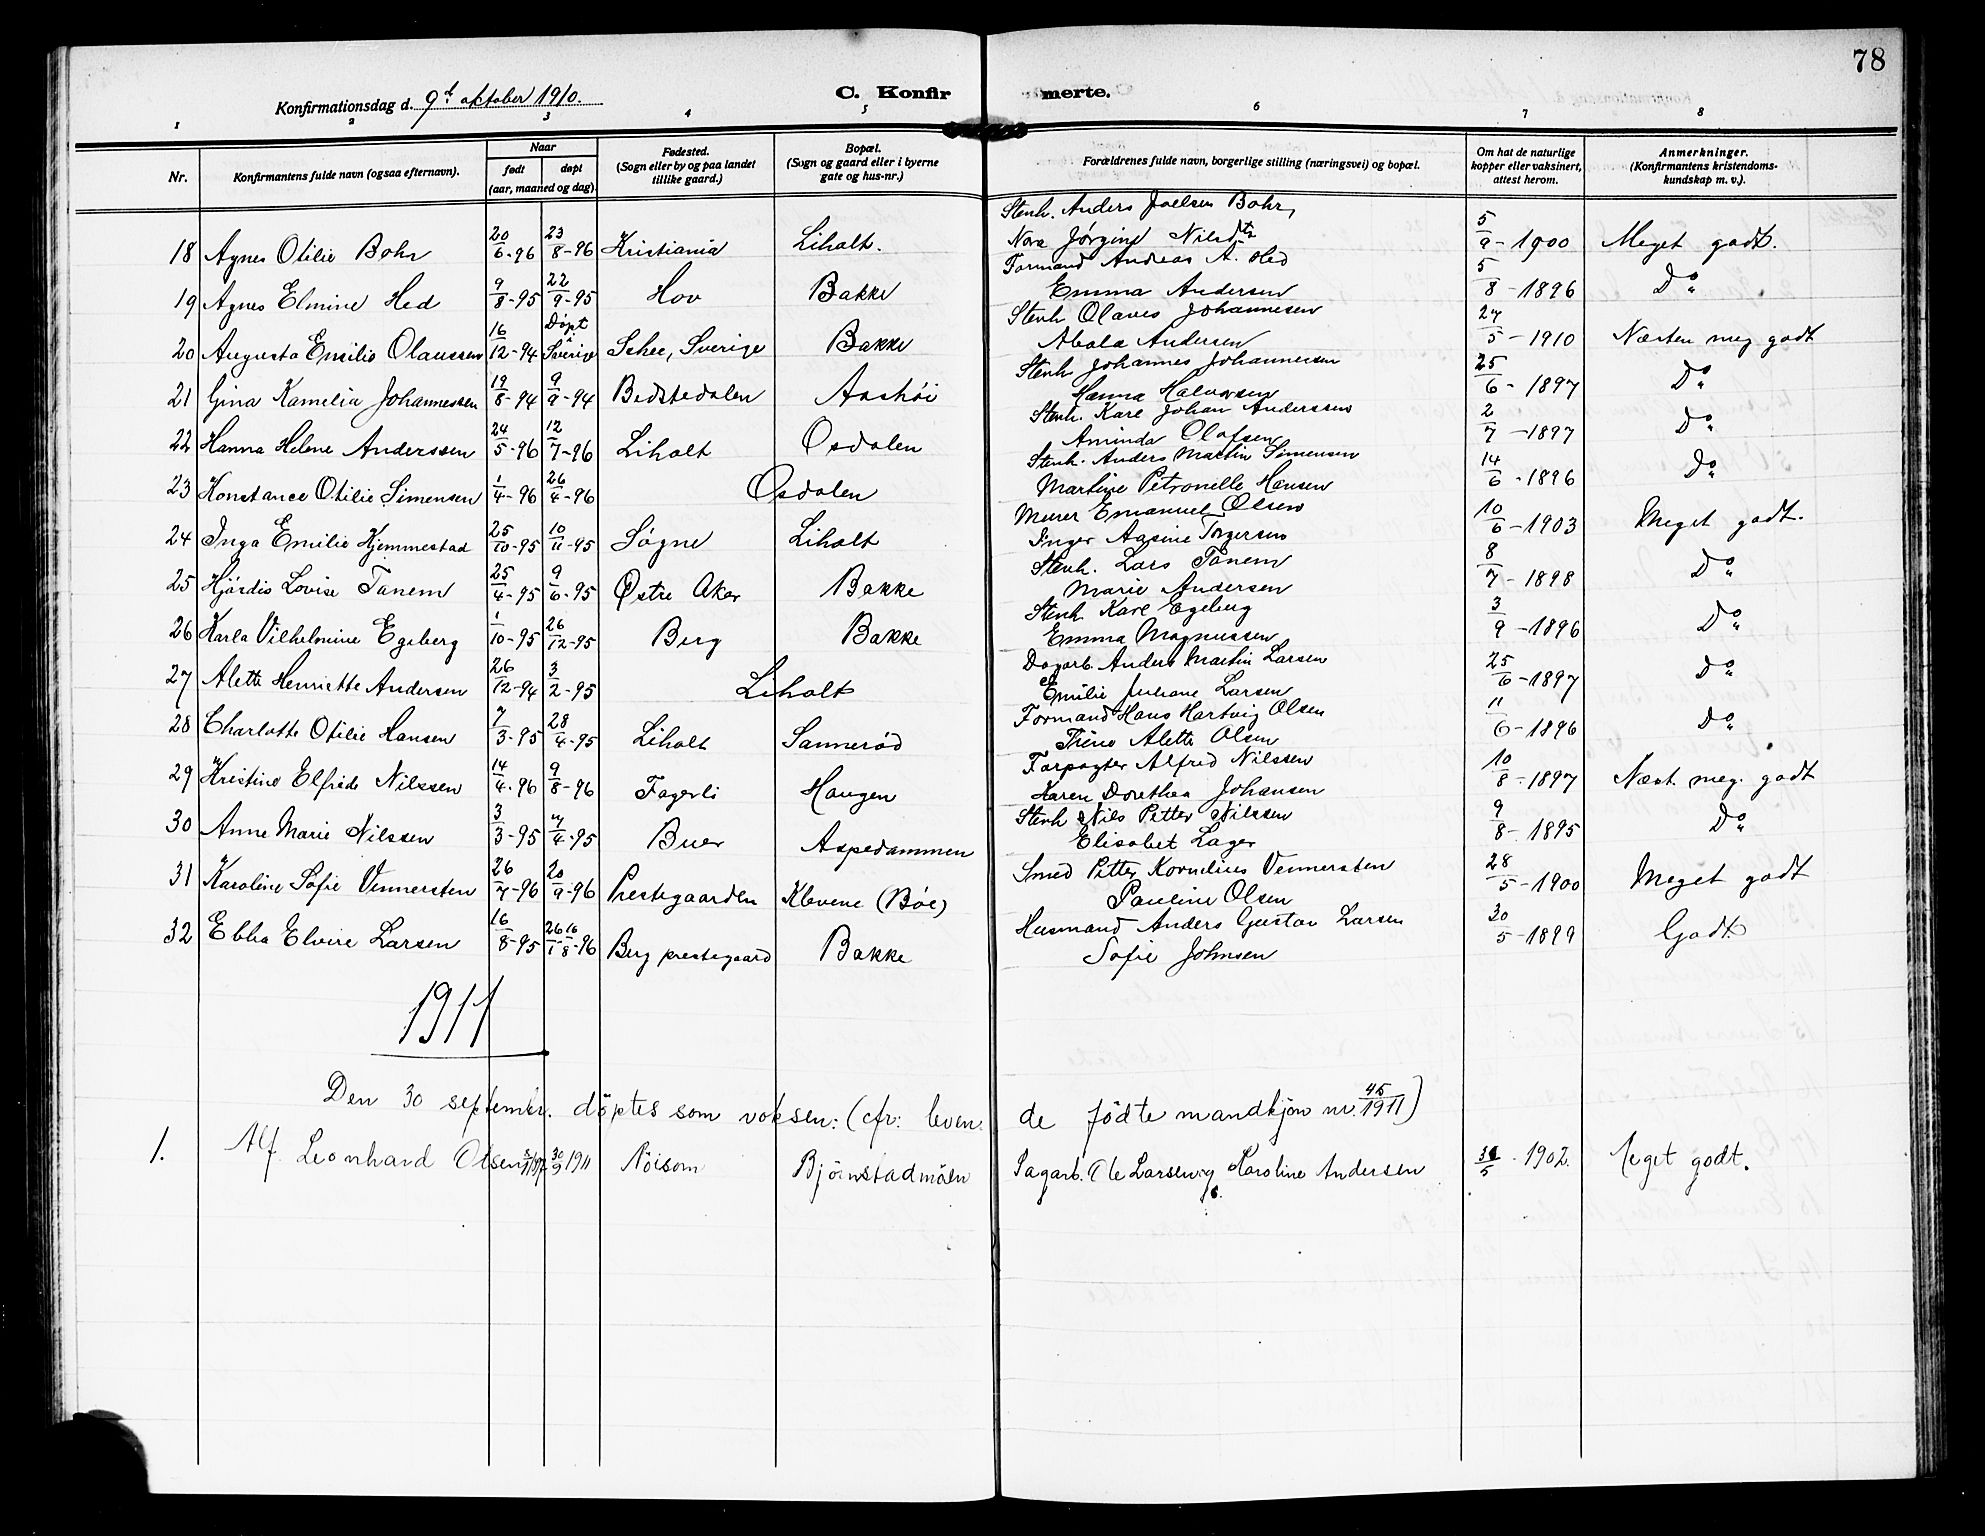 78
Konfirmationsdag d. 9de oktober 1910.
C. Konfirmerte.
1 2 3 4 5 6 7 8
Nr. Konfirmantens fulde navn (ogsaa efternavn). Naar født døpt (aar, maaned og dag). Fødested. (Sogn eller by og paa landet tillike gaard.) Bopæl. (Sogn og gaard eller i byerne gate og hus-nr.) Forældrenes fulde navn, borgerlige stilling (næringsvei) og bopæl. Om hat de naturlige kopper eller vaksinert, attest herom. Anmerkninger. (Konfirmantens kristendomskundskap m. v.).
18 Agnes Otilie Bohr 20/6-96 23/8-96 Kristiania Liholt. Stenh. Anders Joelsen Bohr, Nora Jørgine Nilsdtr 5/9-1900 Meget godt.
19 Agnes Elmine Hed 9/8-95 22/9-95 Hov Bakke Formand Andreas A. Hed Emma Andersen 5/8-1896 Do
20 Augusta Emilie Olaussen 16/12-94 Døpt i Sverige Schee, Sverige Bakke Stenh Olaves Johannesen Abola Andersen 27/5-1910 Næsten meg godt
21 Gina Kamelia Johannessen 19/8-94 9/9-94 Bedstedalen Aashøi Stenh Johannes Johannessen Hanna Halvorsen 25/6-1897 Do
22 Hanna Helene Anderssen 24/5-96 12/7-96 Liholt Osdalen Stenh. Karl Johan Anderssen Aminda Olafsen 2/7-1897 Do
23 Konstance Otilie Simensen 1/4-96 26/4-96 Osdalen Stenh. Anders Martin Simensen Martine Petronelle Hansen 14/6-1896 Do
24 Inga Emilie Hjemmestad 25/10-95 10/11-95 Søgne Liholt Murer Emanuel Olsen Inger Aasine Torgersen 10/6-1903 Meget godt.
25 Hjørdis Lovise Tanem 25/4-95 9/6-95 Østre Aker Bakke Stenh. Lars Tanem Marie Andersen 8/7-1898 Do
26 Karla Vilhelmine Egeberg 1/10-95 26/12-95 Berg Bakke Stenh Karl Egeberg Emma Magnussen 3/9-1896 Do
27 Alette Henriette Andersen 26/12-94 3/2-95 Liholt Dagarb. Anders Martin Larsen Emilie Juliane Larsen 25/6-1897 Do
28 Charlotte Otilie Hansen 7/3-95 28/4-95 Liholt Sannerød Formand Hans Hartvig Olsen Trine Alette Olsen 11/6-1896 Do
29 Kristine Elfride Nilssen 14/4-96 9/8-96 Fagerli Haugen Forpagter Alfred Nilssen Karen Dorethea Johansen 10/8-1897 Næst. meg. godt
30 Anne Marie Nilssen 3/3-95 7/4-95 Buer Aspedammen Stenh Nils Petter Nilssen Elisabet Lager 9/8-1895 Do
31 Karoline Sofie Vennersten 26/7-96 20/9-96 Prestegaarden Klevene (Bøe) Smed Petter Kornelius Vennersten Pauline Olsen 28/5-1900 Meget godt
32 Ebba Elvire Larsen 16/8-95 16/8-96 Berg prestegaard Bakke Husmand Anders Gustav Larsen Sofie Johnsen 30/5-1899 Godt
1911
Den 30 septembr. döptes som voksen: (cfr: levende födte mandkjøn nr. 45/1911)
1. Alf Leonhard Olsen 30/9 1911 Nöisom Björnstadmöen Sagarb. Ole Larsen og Karoline Andersen 31/5-1902. Meget godt.